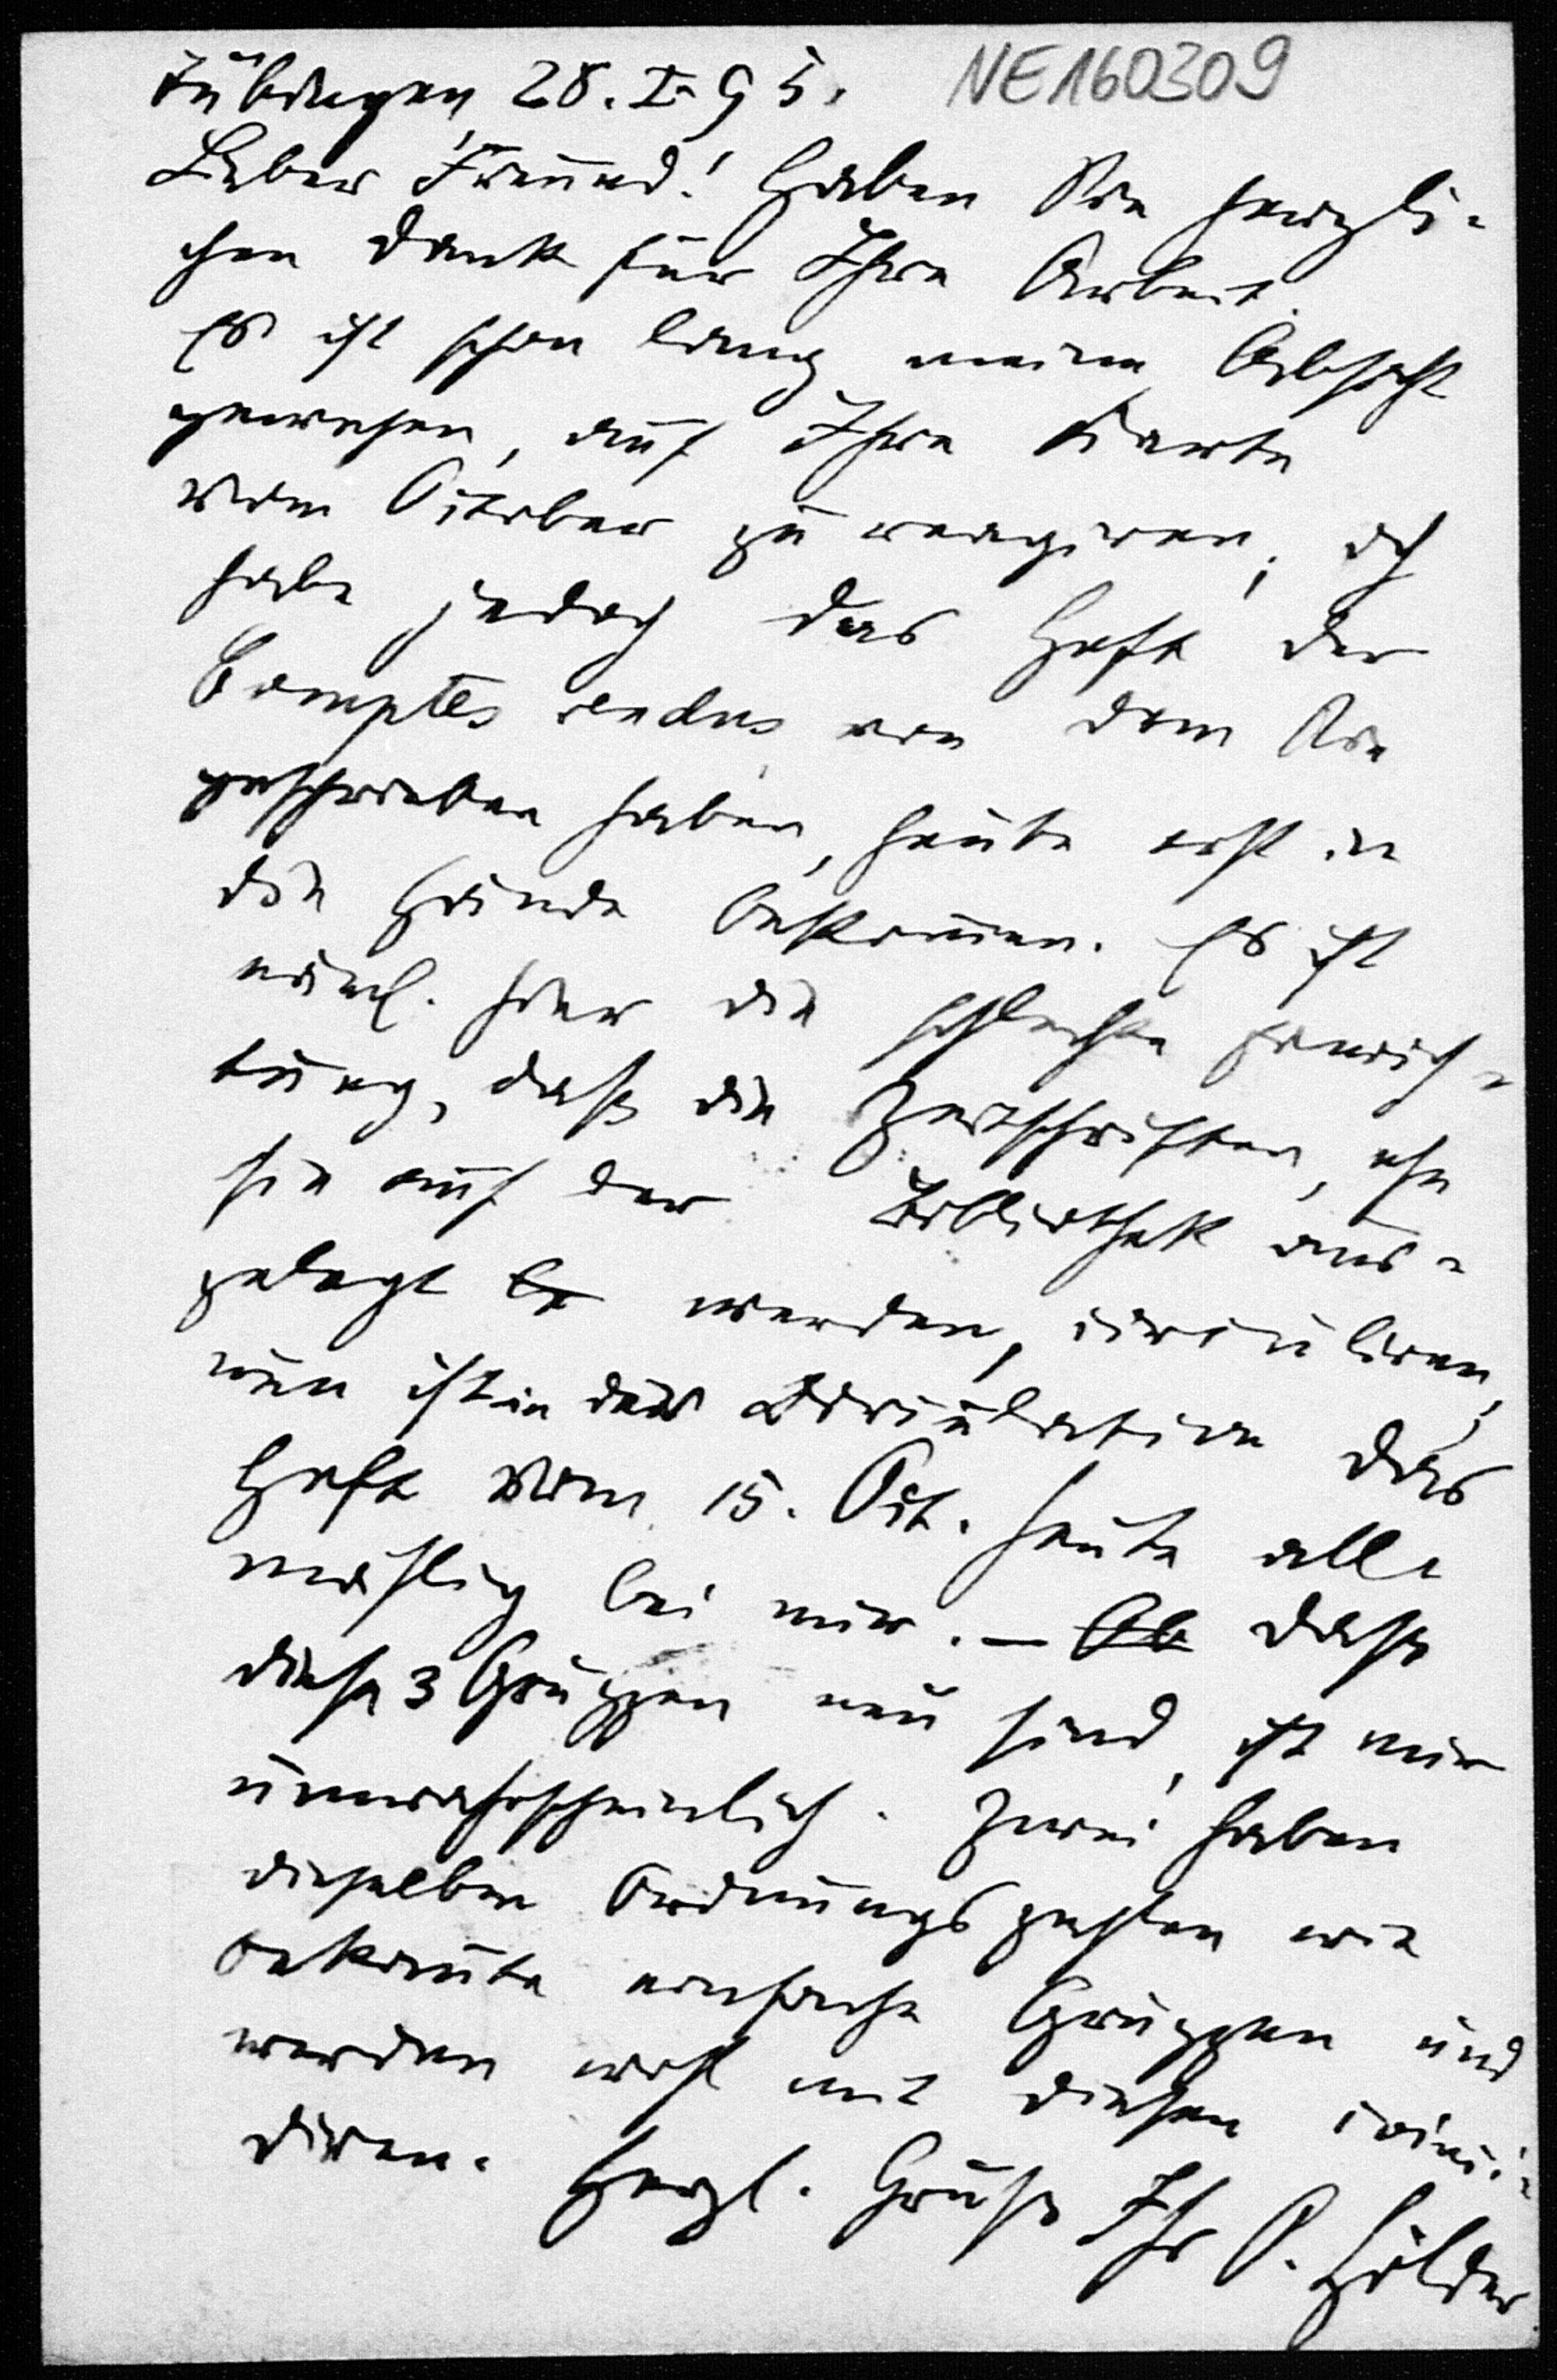 Tübingen 28. I. 95. NE160309
Lieber Freund! Haben Sie herzli-
chen Dank für Ihre Arbeit.
Es ist schon lang meine Absicht
gewesen, auf Ihre Karte
vom October zu reagiren, ich
habe jedoch das Heft der
Comptes rendus von dem Sie
geschrieben haben, heute erst in
die Hände bekommen. Es ist
näml. hier die schlechte Einrich-
tung, daß die Zeitschriften, ehe
sie auf der Bibliothek aus-
gelegt werden, circuliren,
nun ist in der Circulation das
Heft vom 15. Oct. heute all-
mählig bei mir. — Ob dass
diese 3 Gruppen neu sind, ist mir
unwahrscheinlich. Zwei haben
dieselben Ordnungszahlen wie
bekannte einfache Gruppen und
werden wohl mit diesen coinci-
diren. Herzl. Grüße Ihr O. Hölder